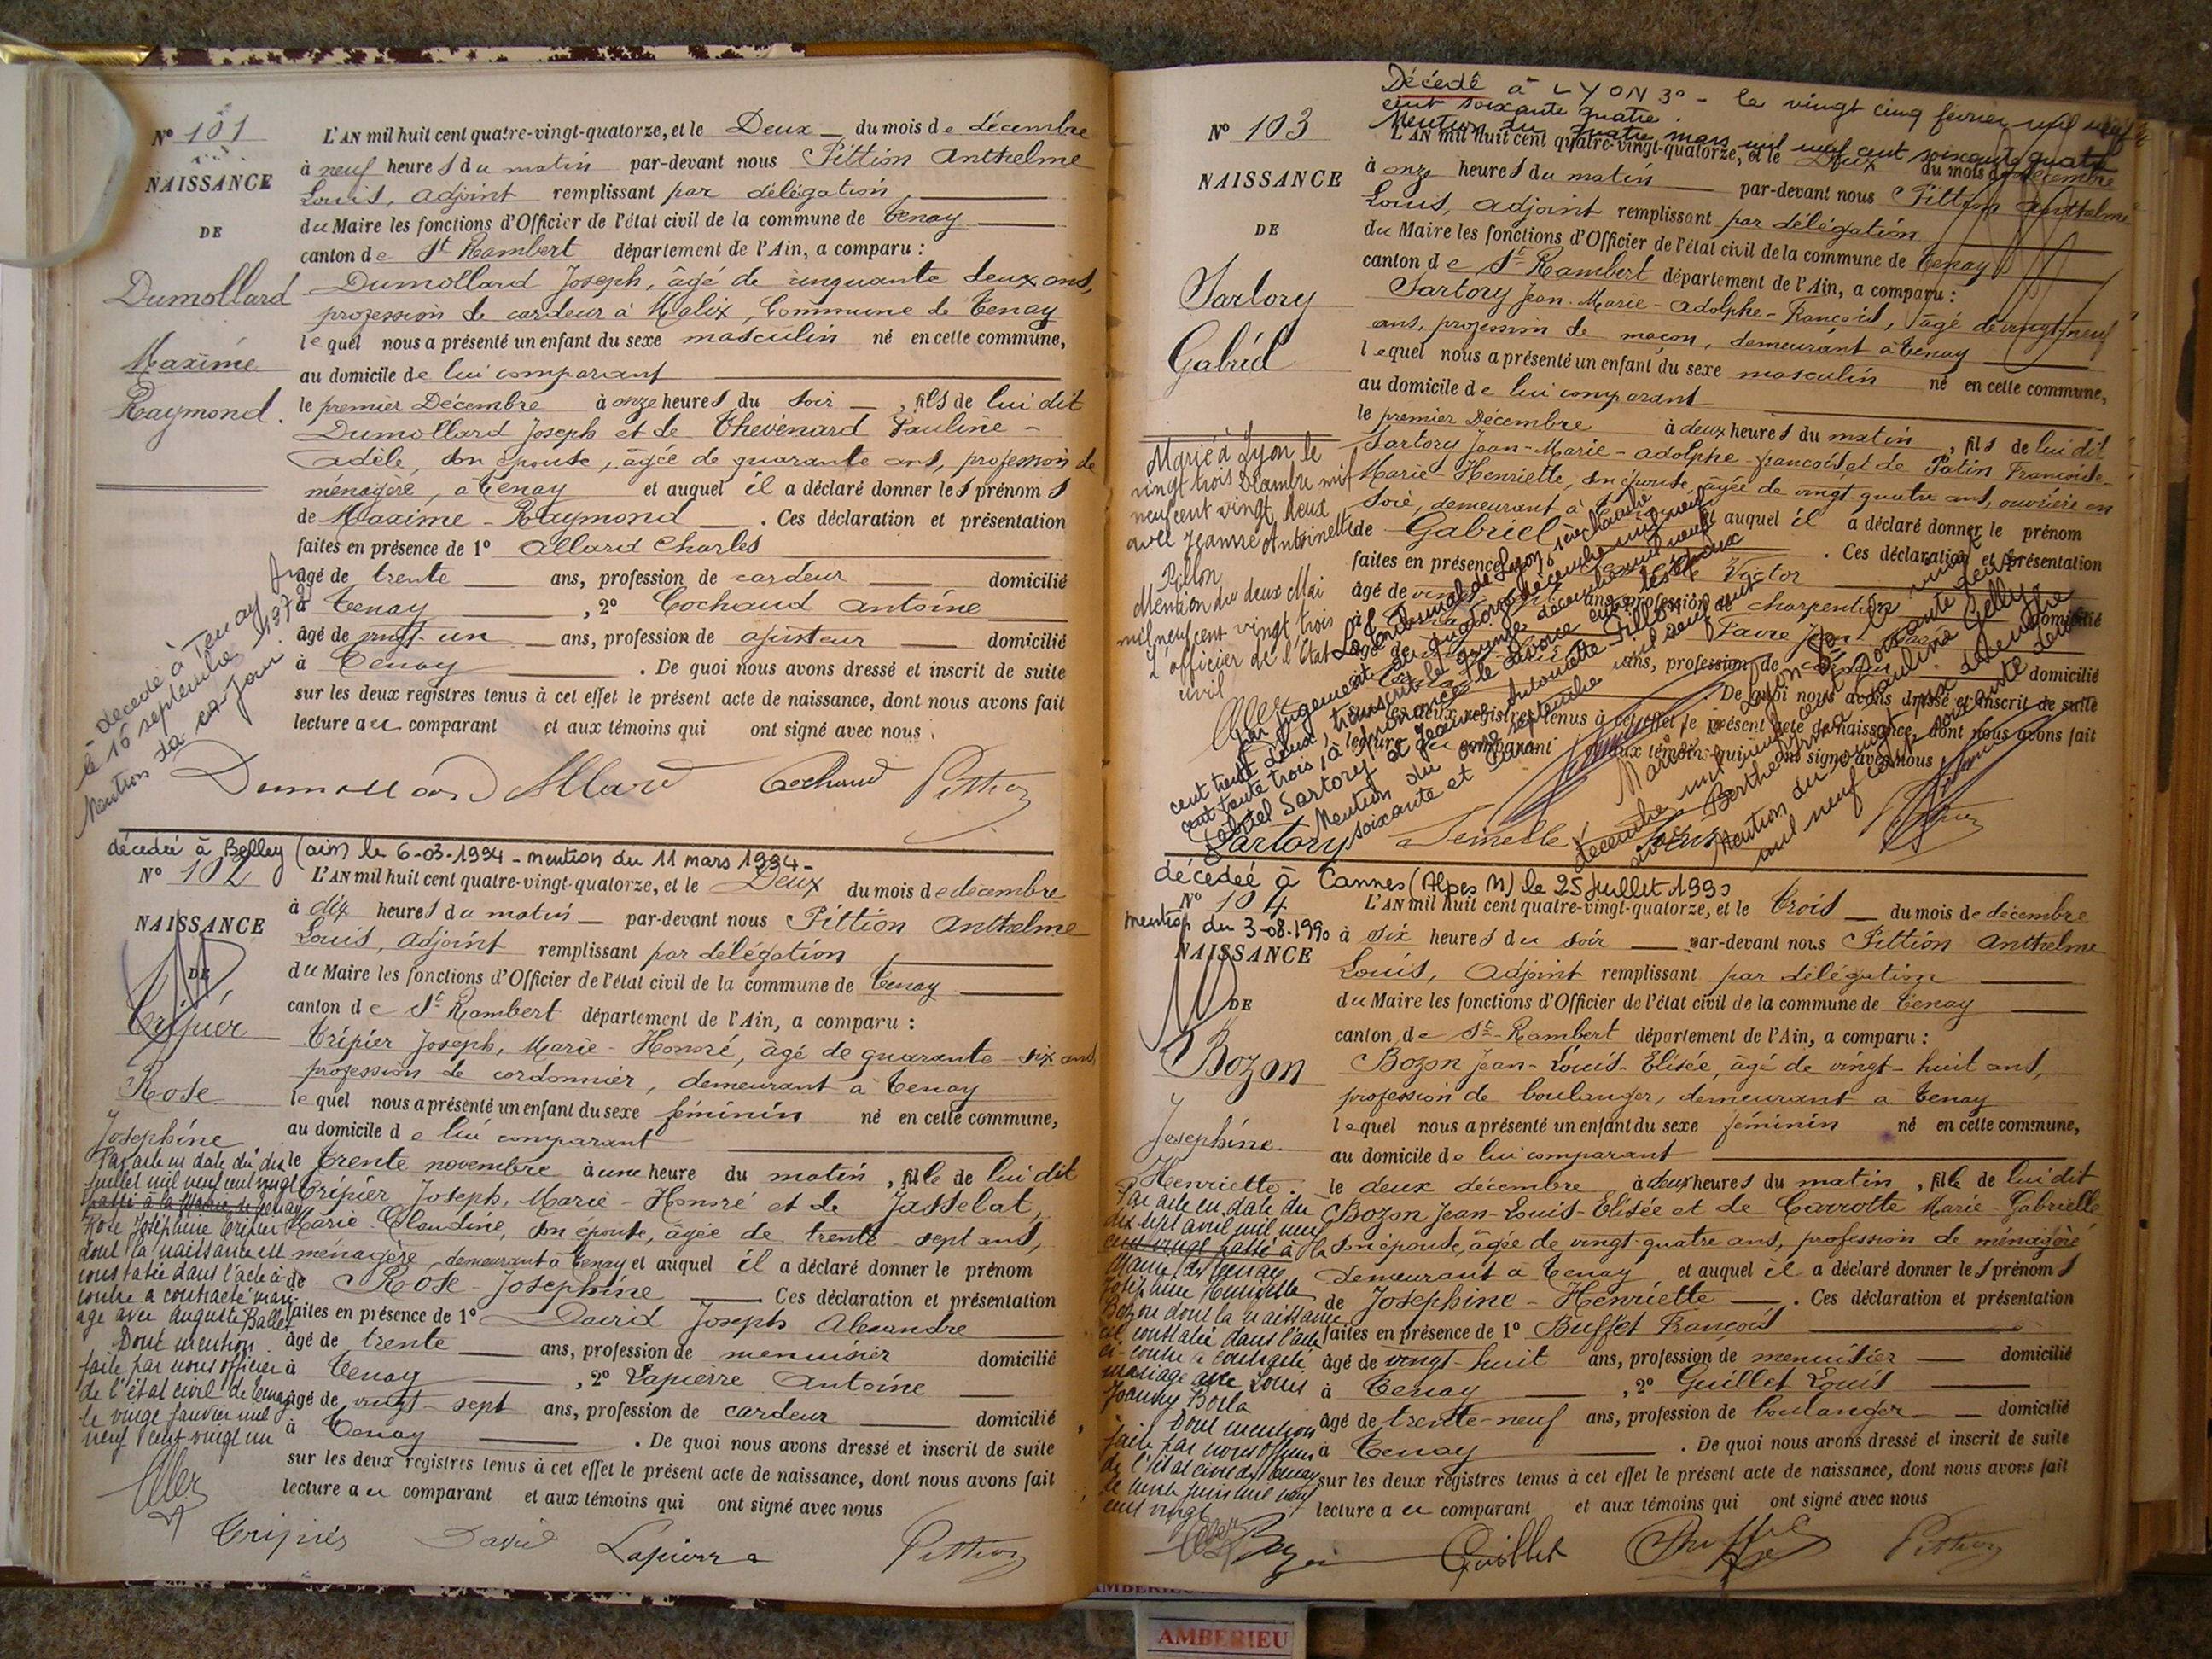 N° 101
NAISSANCE
DE
Dumollard
Maxime
Raymond.
L'AN mil huit cent quatre-vingt-quatorze, et le Deux du mois de décembre
à neuf heures du matin par-devant nous Pittion Anthelme
Louis, adjoint remplissant par délégation
du Maire les fonctions d'Officier de l'état civil de la commune de Tenay
canton de St Rambert département de l'Ain, a comparu :
Dumollard Joseph, âgé de cinquante deux ans,
profession de cardeur à Malix, Commune de Tenay
lequel nous a présenté un enfant du sexe masculin né en cette commune,
au domicile de lui comparant
le premier Décembre à onze heures du soir, fils de lui dit
Dumollard Joseph et de Thevenard Pauline-
Adèle, son épouse, âgée de quarante ans, profession de
ménagère, à Tenay et auquel il a déclaré donner les prénoms
de Maxime-Raymond. Ces déclaration et présentation
faites en présence de 1° Allard Charles
âgé de trente ans, profession de cardeur domicilié
à Tenay, 2° Cochaud Antoine
âgé de vingt-un ans, profession de ajusteur domicilié
à Tenay. De quoi nous avons dressé et inscrit de suite
sur les deux registres tenus à cet effet le présent acte de naissance, dont nous avons fait
lecture au comparant et aux témoins qui ont signé avec nous.
- Décédé à Tenay
le 16 septembre
Mention du ce jour
Dumollard Allard Cochaud Pittion
décédée à Belley (ain) le 6-03-1994 - mention du 11 mars 1994 -
N° 102
NAISSANCE
DE
Tripier
Rose
Josephine
L'AN mil huit cent quatre-vingt-quatorze, et le Deux du mois de décembre
à dix heures du matin par-devant nous Pittion Anthelme
Louis, adjoint remplissant par délégation
du Maire les fonctions d'Officier de l'état civil de la commune de Tenay
canton de St Rambert département de l'Ain, a comparu :
Tripier Joseph, Marie-Honoré, âgé de quarante-six ans,
profession de cordonnier, demeurant à Tenay
lequel nous a présenté un enfant du sexe féminin né en cette commune,
au domicile de lui comparant
le trente novembre à une heure du matin, fille de lui dit
Tripier Joseph, Marie-Honoré et de Jasselat,
Marie-Claudine, son épouse, âgée de trente-sept ans,
ménagère, demeurant à Tenay et auquel il a déclaré donner le prénom
de Rose-Josephine Ces déclaration et présentation
faites en présence de 1° David Joseph Alexandre
âgé de trente ans, profession de menuisier domicilié
à Tenay, 2° Lapierre Antoine
âgé de vingt-sept ans, profession de cardeur domicilié
à Tenay. De quoi nous avons dressé et inscrit de suite
sur les deux registres tenus à cet effet le présent acte de naissance, dont nous avons fait
lecture au comparant et aux témoins qui ont signé avec nous
Par acte en date du dix
juillet mil neuf cent vingt
passé à la Mairie de Tenay
Rose Joséphine Tripier
dont la naissance est
constatée dans l'acte ci-
contre a contracté mari-
age avec Auguste Ballet
Dont mention
faite par nous officier
de l'état civil de Tenay
le vingt janvier mil
neuf cent vingt un
Tripier David Lapierre Pittion
Décédé à LYON 3° - le vingt cinq février mil neuf
cent soixante quatre.
Mention du quatre mars mil neuf cent soixante quatre
N° 103
NAISSANCE
DE
Sartory
Gabriel
L'AN mil huit cent quatre-vingt-quatorze, et le Deux du mois de décembre
à onze heures du matin par-devant nous Pittion Anthelme
Louis, adjoint remplissant par délégation
du Maire les fonctions d'Officier de l'état civil de la commune de Tenay
canton de St Rambert département de l'Ain, a comparu :
Sartory Jean-Marie-Adolphe-François, âgé de vingt-neuf
ans, profession de maçon, demeurant à Tenay
lequel nous a présenté un enfant du sexe masculin né en cette commune,
au domicile de lui comparant
le premier Décembre à deux heures du matin, fils de lui dit
Sartory Jean-Marie-Adolphe-François et de Patin Françoise-
Marie-Henriette, son épouse, âgée de vingt-quatre ans, ouvrière en
soie, demeurant à auquel il a déclaré donner le prénom
de Gabriel. Ces déclaration et présentation
faites en présence Victor
âgé de ans, profession de charpentier domicilié
Favre Jean
ans, profession de domicilié
De quoi nous avons dressé et inscrit de suite
les deux registres tenus à cet effet le présent acte de naissance, dont nous avons fait
lecture au comparant aux témoins qui ont signé avec nous
Marié à Lyon le
vingt trois Décembre mil
neuf cent vingt deux
avec Jeanne Antoinette
Pillon
Mention du deux Mai
mil neuf cent vingt trois
L'officier de l'Etat
civil
Par jugement du Tribunal de Lyon
cent trente deux, transcrit le quinze décembre mil neuf
cent trente trois, a prononcé le divorce entre les époux
Gabriel Sartory et Jeanne Antoinette Pillon
Mention du onze septembre mil neuf cent
soixante et
Marié à Lyon
décembre mil neuf cent soixante deux
avec Berthe Pauline Gelly
Mention du vingt six décembre
mil neuf cent soixante deux
Sartory Semelle
décédée à Cannes (Alpes M) le 25 Juillet 1990
mention du 3-08-1990
N° 104
NAISSANCE
DE
Bozon
Josephine.
Henriette.
L'AN mil huit cent quatre-vingt-quatorze, et le trois du mois de décembre
à six heures du soir par-devant nous Pittion Anthelme
Louis, adjoint remplissant par délégation
du Maire les fonctions d'Officier de l'état civil de la commune de Tenay
canton de St-Rambert département de l'Ain, a comparu :
Bozon Jean-Louis-Elisée, âgé de vingt-huit ans,
profession de boulanger, demeurant à Tenay
lequel nous a présenté un enfant du sexe féminin né en cette commune,
au domicile de lui comparant
le deux décembre à deux heures du matin, fille de lui dit
Bozon Jean-Louis-Elisée et de Carrotte Marie-Gabrielle
son épouse, âgée de vingt-quatre ans, profession de ménagère
demeurant à Tenay et auquel il a déclaré donner les prénoms
de Josephine-Henriette. Ces déclaration et présentation
faites en présence de 1° Buffet François
âgé de vingt-huit ans, profession de menuisier domicilié
à Tenay, 2° Guillet Louis
âgé de trente-neuf ans, profession de boulanger domicilié
à Tenay. De quoi nous avons dressé et inscrit de suite
sur les deux registres tenus à cet effet le présent acte de naissance, dont nous avons fait
lecture au comparant et aux témoins qui ont signé avec nous
Par acte en date du
dix sept avril mil neuf
cent vingt passé à la
Mairie de Tenay
Joséphine Henriette
Bozon dont la naissance
est constatée dans l'acte
ci-contre a contracté
mariage avec Louis
Joanny Borla
Dont mention
faite par nous officier
de l'état civil de Tenay
le trente juin mil neuf
cent vingt
Bozon Guillet Buffet Pittion
AMBERIEU